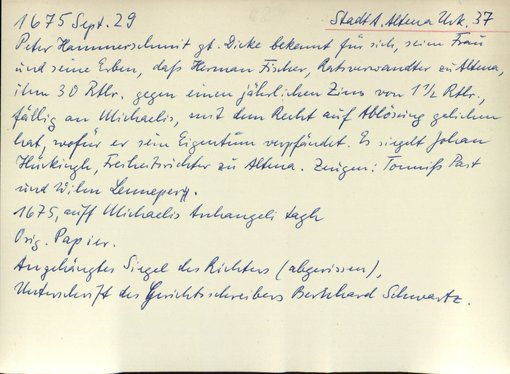 1675 Sept. 29 Stadt A. Altena Urk. 37
Peter Hammerschmit gt. Dicke bekennt für sich, seine Frau
und seine Erben, daß Herman Fischer, Ratsverwandter zu Altena,
ihm 30 Rtlr. gegen einen jährlichen Zins von 1 1/2 Rtlr.,
fällig an Michaelis, mit dem Recht auf Ablösung geliehen
hat, wofür er sein Eigentum verpfändet. Es siegelt Johan
Freiheitsrichter zu Altena. Zeugen: Tonniß Past
und Wilm
1675, auff Michaelis Archangeli tagh
Orig. Papier.
Angehängtes Siegel des Richters (abgerissen),
Unterschrift des Gerichtsschreibers Bernhard Schwartz.